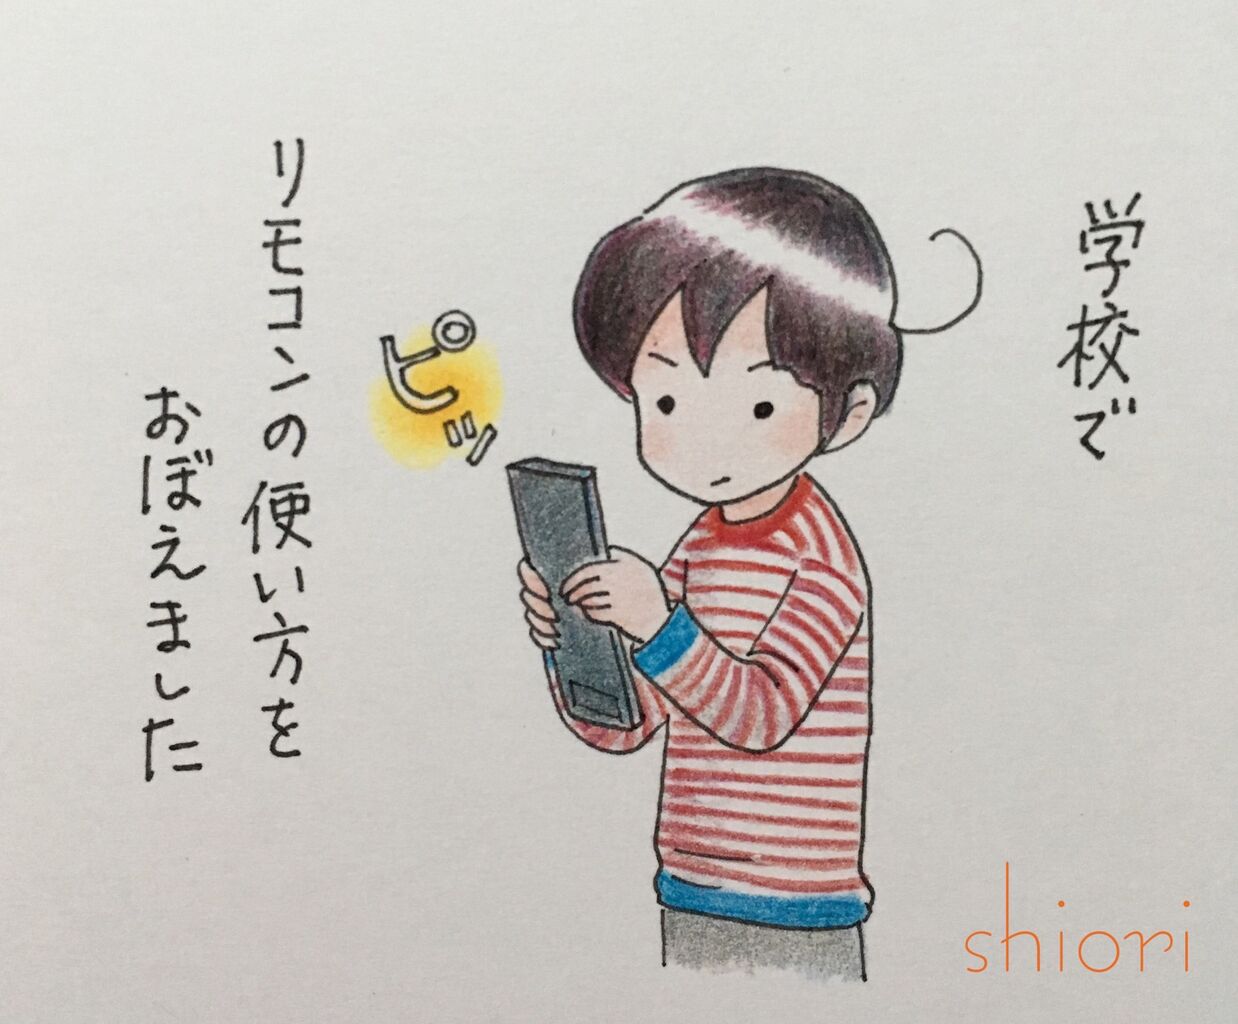 学校で
ピッ
リモコンの使い方を
おぼえました
shiori